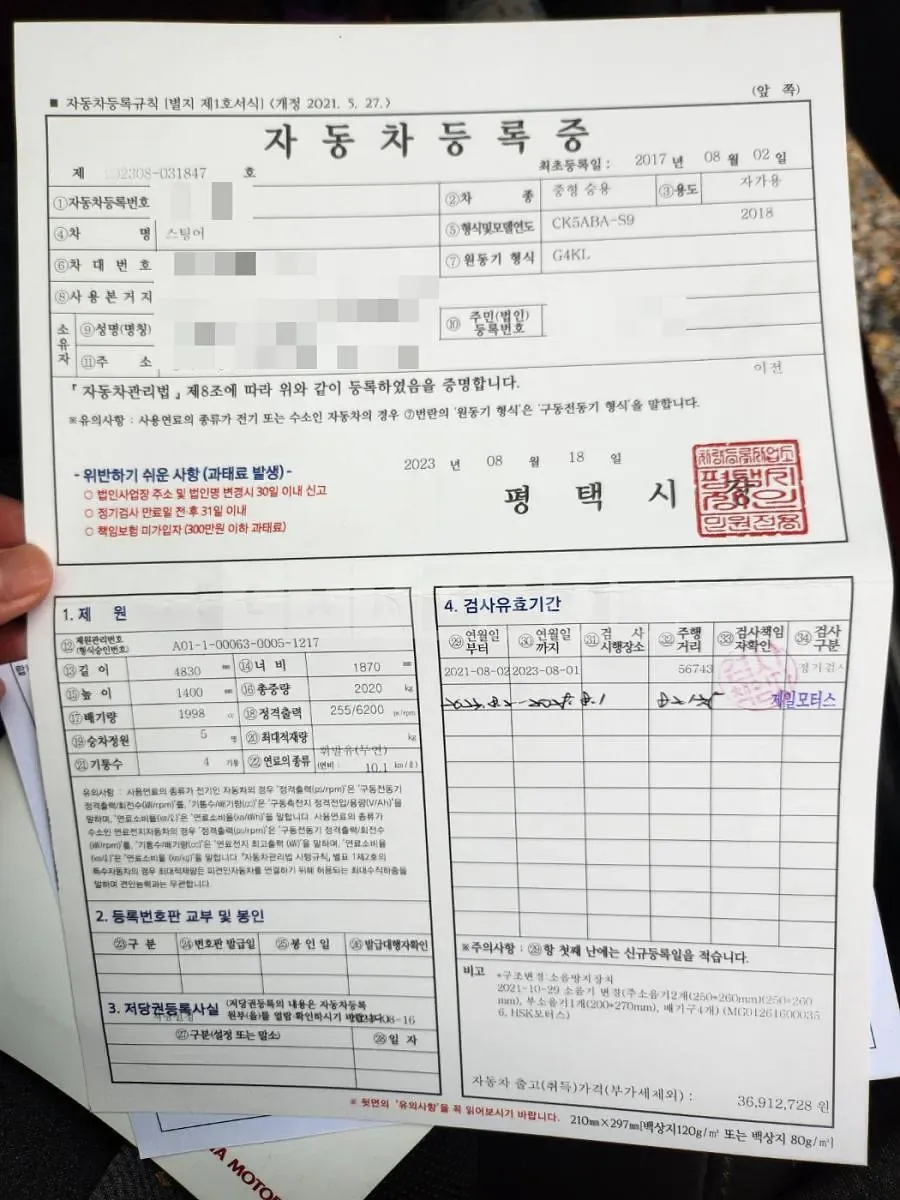 ■ 자동차등록규칙 [별지 제1호서식] <개정 2021. 5. 27.>
(앞 쪽)
자동차등록증
제 202308-031847 호
최초등록일 : 2017 년 08 월 02 일
①자동차등록번호
②차 종 중형 승용 ③용도 자가용
④차 명 스팅어
⑤형식및모델연도 CK5ABA-S9 2018
⑥차 대 번 호
⑦원동기 형식 G4KL
⑧사 용 본 거 지
소유자
⑨성명(명칭)
⑩ 주민(법인)등록번호
⑪주 소
이전
「자동차관리법」제8조에 따라 위와 같이 등록하였음을 증명합니다.
※유의사항 : 사용연료의 종류가 전기 또는 수소인 자동차의 경우 ⑦번란의 '원동기 형식'은 '구동전동기 형식'을 말합니다.
2023 년 08 월 18 일
- 위반하기 쉬운 사항 (과태료 발생) -
○ 법인사업장 주소 및 법인명 변경시 30일 이내 신고
○ 정기검사 만료일 전·후 31일 이내
○ 책임보험 미가입자 (300만원 이하 과태료)
평 택 시 장
민원전용
1. 제 원
⑫ 제원관리번호 (형식승인번호) A01-1-00063-0005-1217
⑬길 이 4830 mm ⑭너 비 1870 mm
⑮높 이 1400 mm ⑯총중량 2020 kg
⑰배기량 1998 cc ⑱정격출력 255/6200 ps/rpm
⑲승차정원 5 명 ⑳최대적재량 kg
㉑기통수 4 기통 ㉒연료의종류 휘발유(무연) (연비 : 10.1 km/ℓ)
유의사항 : 사용연료의 종류가 전기인 자동차의 경우 '정격출력(ps/rpm)'은 '구동전동기
정격출력/회전수(㎾/rpm)'를, '기통수/배기량(cc)'은 '구동축전지 정격전압/용량(V/Ah)'을
말하며, '연료소비율(㎞/ℓ)'은 '연료소비율(㎞/㎾h)'을 말합니다. 사용연료의 종류가
수소인 연료전지자동차의 경우 '정격출력(ps/rpm)'은 '구동전동기 정격출력/회전수
(㎾/rpm)'를, '기통수/배기량(cc)'은 '연료전지 최고출력 (㎾)'을 말하며, '연료소비율
(㎞/ℓ)'은 '연료소비율 (㎞/㎏)'을 말합니다. 「자동차관리법 시행규칙」 별표 1제2호의
특수자동차의 경우 최대적재량은 피견인자동차를 연결하기 위해 허용되는 최대수직하중을
말하며 견인능력과는 무관합니다.
2. 등록번호판 교부 및 봉인
㉓구 분 ㉔번호판 발급일 ㉕봉 인 일 ㉖발급대행자확인
3. 저당권등록사실 (저당권등록의 내용은 자동차등록
원부(을)를 열람 확인하시기 바랍니다.)
08-16
㉗구분(설정 또는 말소) ㉘일 자
4. 검사유효기간
㉙연월일부터 ㉚연월일까지 ㉛검 사 시행장소 ㉜주행거리 ㉝검사책임자확인 ㉞검사구분
2021-08-02 2023-08-01 56743 정기검사
제일모터스
※주의사항 : ㉙항 첫째 난에는 신규등록일을 적습니다.
비고 *구조변경:소음방지장치
2021-10-29 소음기 변경(주소음기2개(250*260mm)(250*260
mm), 부소음기1개(200*270mm), 배기구4개) (MG01261600035
6, HSK모터스)
자동차 출고(취득)가격(부가세제외) : 36,912,728 원
※ 뒷면의 '유의사항'을 꼭 읽어보시기 바랍니다.
210㎜×297㎜[백상지120g/㎡ 또는 백상지 80g/㎡]
MOTOR